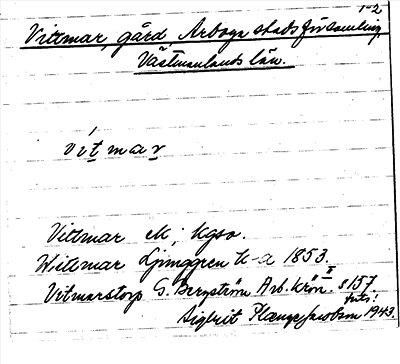 1-2
Vittmar, gård Arboga stadsförsamling
Västmanlands län.
vítmar
Vittmar ek; kgso.
Wittmar Ljunggren k-a 1853.
Vitmarstorp G. Bergström Arb. krön. II s 157.
Sigbrit Plange Jacobson 1943.